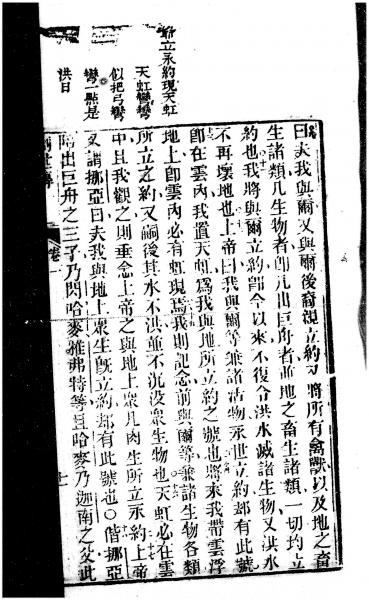 立永約現天虹
天虹彎彎
似把弓彎
彎一點是
洪日
曰夫我與爾又與爾後裔親立約又將所有禽獸以及地之畜
生諸類凡生物者即凡出巨舟者並地之畜生諸類一切均立
約也我將與爾立約即今以來不復令洪水滅諸生物又洪水
不再壞地也上帝曰我與爾等兼諸活物永世立約都有此號
即在雲內我置天虹為我與地所立約之號也將來我帶雲浮
地上即雲內必有虹現焉我則記念前與爾等兼諸生物各類
所立之約又嗣後其水不洪並不沉沒眾生物也天虹必在雲
中且我觀之則垂念上帝之與地上眾凡肉生所立永約上帝
又謂挪亞曰夫我與地上眾生既立約都有此號也○偕挪亞
出巨舟之三子乃閃哈麥雅弗特等且哈麥乃迦南之父此
世傳 卷一